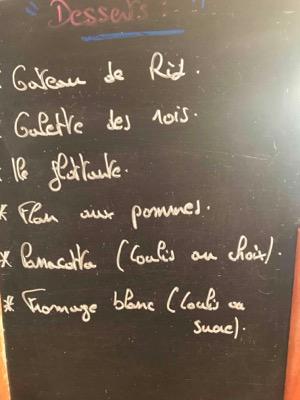 " Desserts : "
* Gâteau de Riz.
* Galette des rois.
* Ile flottante.
* Flan aux pommes.
* Panacotta (Coulis au choix).
* Fromage blanc (Coulis ou
sucre).